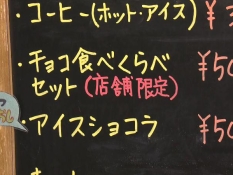 ・コーヒー(ホット・アイス) ¥3
・チョコ食べくらべ ¥50
セット(店舗限定)
・アイスショコラ ¥50